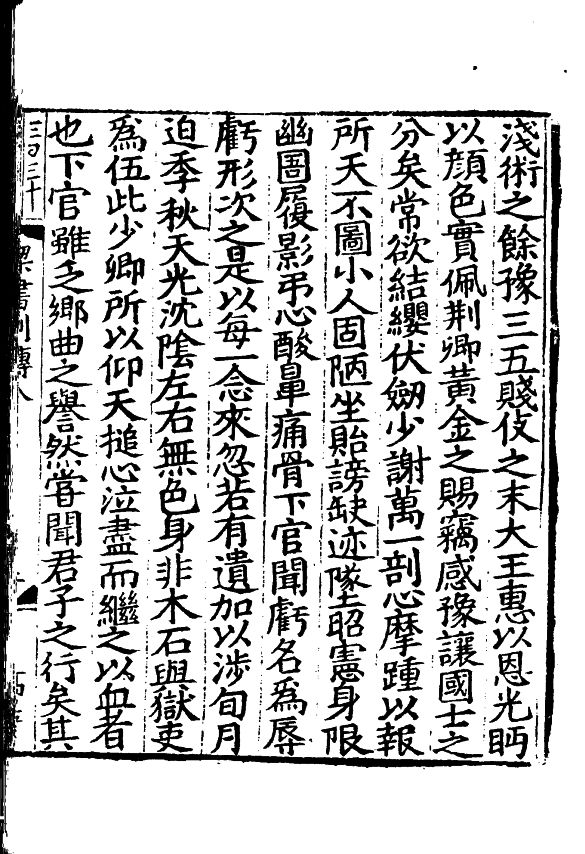 淺術之餘豫三五賤伎之末大王惠以恩光眄
以顔色實佩荆卿黃金之賜竊感豫讓國士之
分矣常欲結纓伏劒少謝萬一剖心摩踵以報
所天不圖小人固陋坐貽謗缺迹隊昭憲身限
幽圄履影弔心酸鼻痛骨下官聞虧名爲辱
虧形次之是以每一念來忽若有遺加以涉旬月
迫季秋天光沈陰左右無色身非木石與獄吏
爲伍此少卿所以仰天搥心泣盡而繼之以血者
也下官雖乏鄉曲之譽然嘗聞君子之行矣其
梁書列傳八